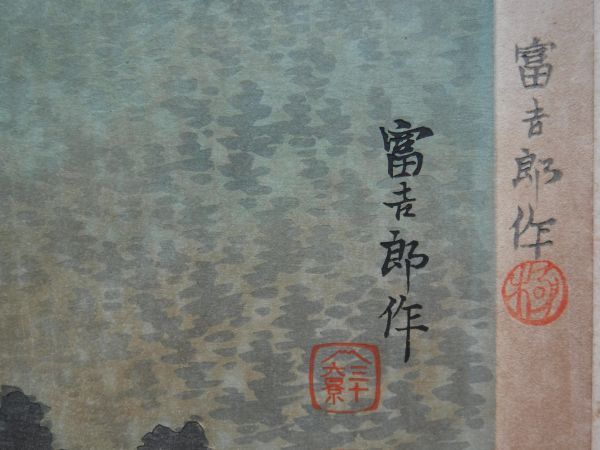 富吉郎作
富吉郎作
三十
六景